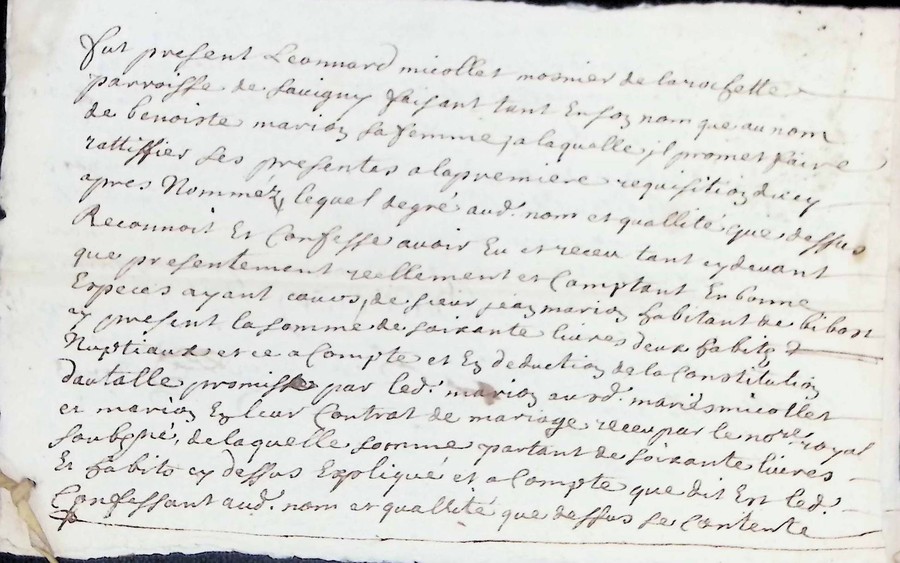 fut present Leonnard micollet mosnier de larochette
parroisse de savigny faisant tant En son nom que au nom
de benoiste marion sa femme, a laqualle jl promet faire
rattiffier ses presentas a la premiere requisition du cy
apres Nommé, lequel de gré aud. nom et quallité que dessus
Reconnoit Et Confesse avoir Eu et receu tant cy devant
que presentement reellement et Comptant En bonne
Especes ayant cours, de sieur jean marion habitant de bibost
cy present la somme de soixante livres deux habitz
Nuptiaux et ce a Compte et En deduction de la Constitution
dautalle promisse par led. marion ausd. mariés micollet
et marion En leur Contrat de mariage receu par le nore royal
soubgné, de laquelle somme partant de soixante livres
Et habito cy dessus Expliqué et a Compte que dit Est led.
Confessant aud. nom et quallité que dessus se Contente